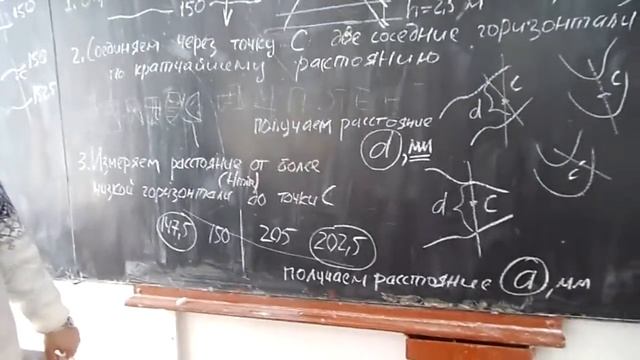 150
150
h=2,5 м
150
1525
2. Соединяем через точку С две соседние горизонтали
по кратчайшему расстоянию
получаем расстояние
d, мм
d
С
С
3. Измеряем расстояние от более
низкой горизонтали (Hmin) до точки С
147,5 150 205 202,5
d
С
получаем расстояние a, мм